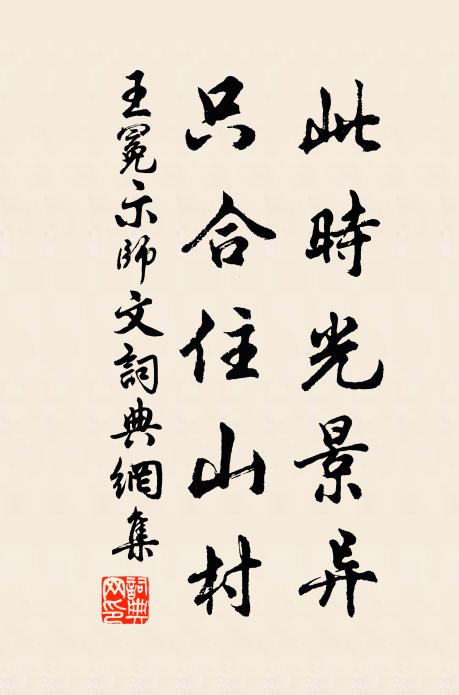 此時光景异
只合住山村
王冕示師文詞典網集
詞典网印